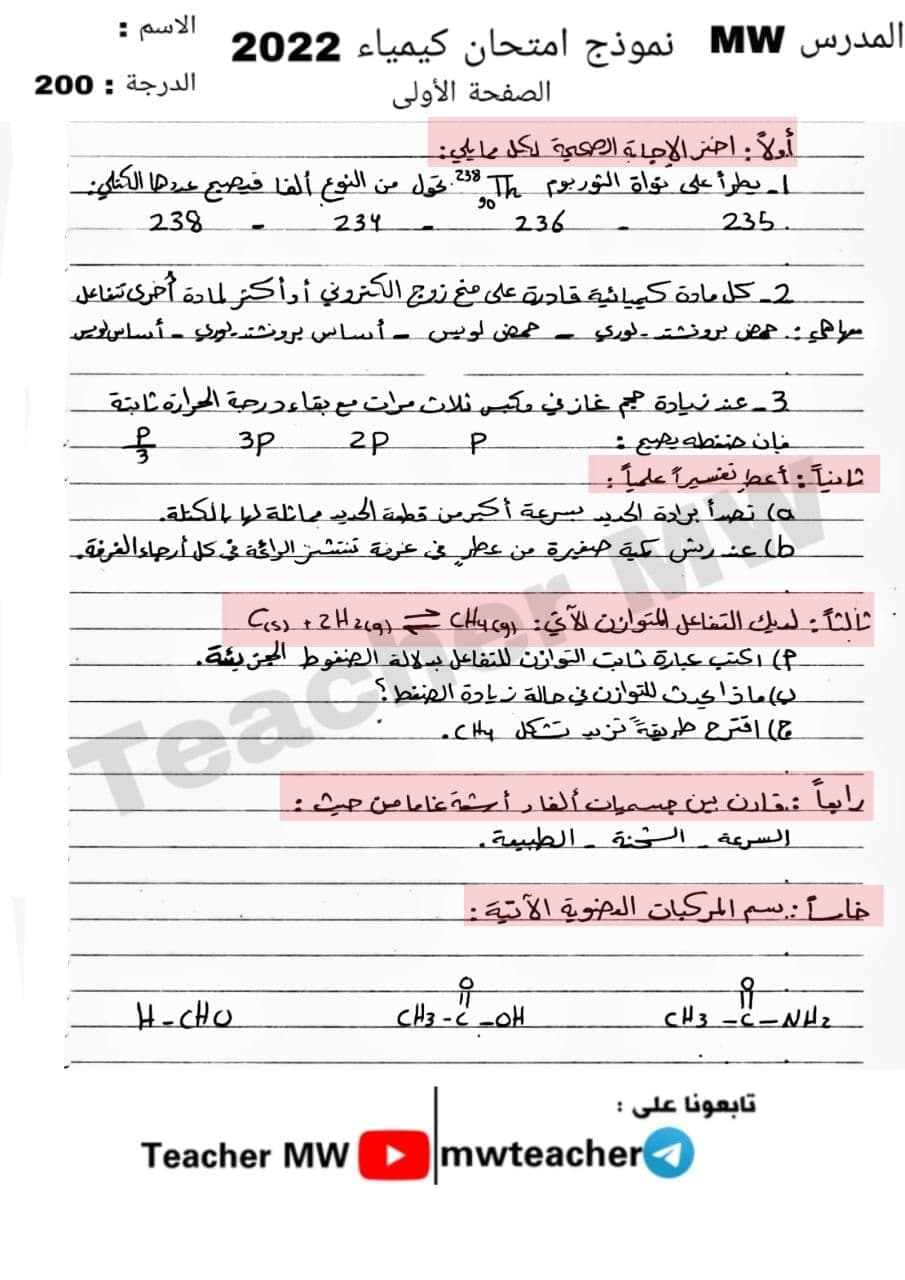 المدرس MW نموذج امتحان كيمياء 2022 الاسم :
الصفحة الأولى الدرجة : 200
أولاً : اختر الإجابة الصحيحة لكل مما يلي :
1- يطرأ على نواة الثوريوم ²³⁸₉₀Th تحول من النوع ألفا فيصبح عددها الكتلي :
235 - 236 - 234 - 238
2- كل مادة كيميائية قادرة على منح زوج الكتروني أو أكثر لمادة أخرى تتفاعل
معها هي : حمض برونشتد - لوري - حمض لويس - أساس برونشتد - لوري - أساس لويس
3- عند زيادة حجم غاز في مكبس ثلاث مرات مع بقاء درجة الحرارة ثابتة
فإن ضغطه يصبح : P 2P 3P P/3
ثانياً : أعطِ تفسيراً علمياً :
a) تصدأ برادة الحديد بسرعة أكبر من قطعة الحديد مماثلة لها بالكتلة.
b) عند رش كمية صغيرة من عطرٍ في غرفة تنتشر الرائحة في كل أرجاء الغرفة.
ثالثاً : لديك التفاعل المتوازن الآتي : C(s) + 2H2(g) ⇌ CH4(g)
أ) اكتب عبارة ثابت التوازن للتفاعل بدلالة الضغوط الجزيئية.
ب) ماذا يحدث للتوازن في حالة زيادة الضغط ؟
ج) اقترح طريقةً تزيد تشكل CH4.
رابعاً : قارن بين جسيمات ألفا و أشعة غاما من حيث :
السرعة - الشحنة - الطبيعة.
خامساً : سم المركبات العضوية الآتية :
O O
CH3 - C - NH2 CH3 - C - OH H - CHO
تابعونا على :
mwteacher Teacher MW
Teacher MW